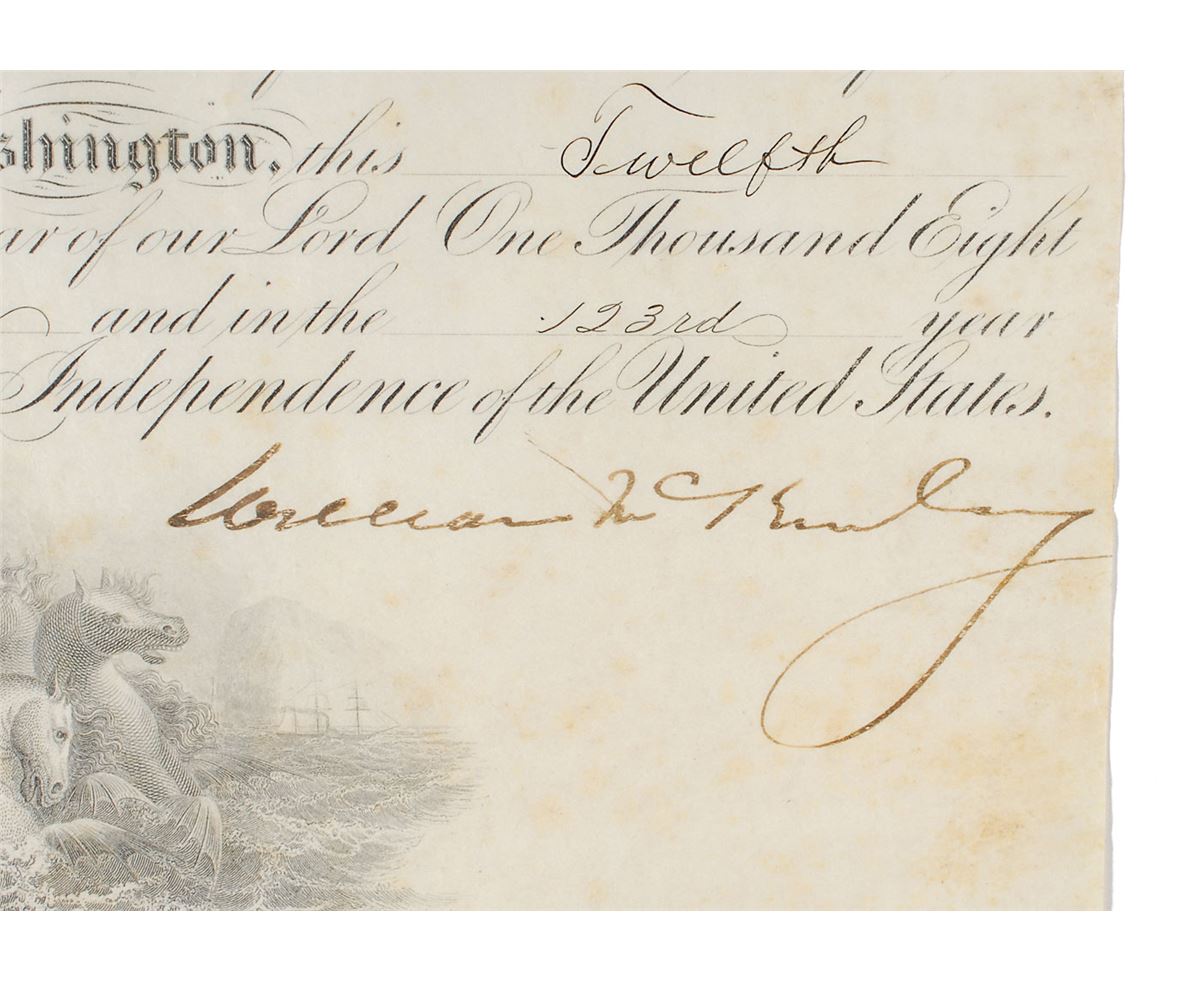 shington, this Twelfth
ar of our Lord One Thousand Eight
and in the 123rd year
Independence of the United States.
William McKinley